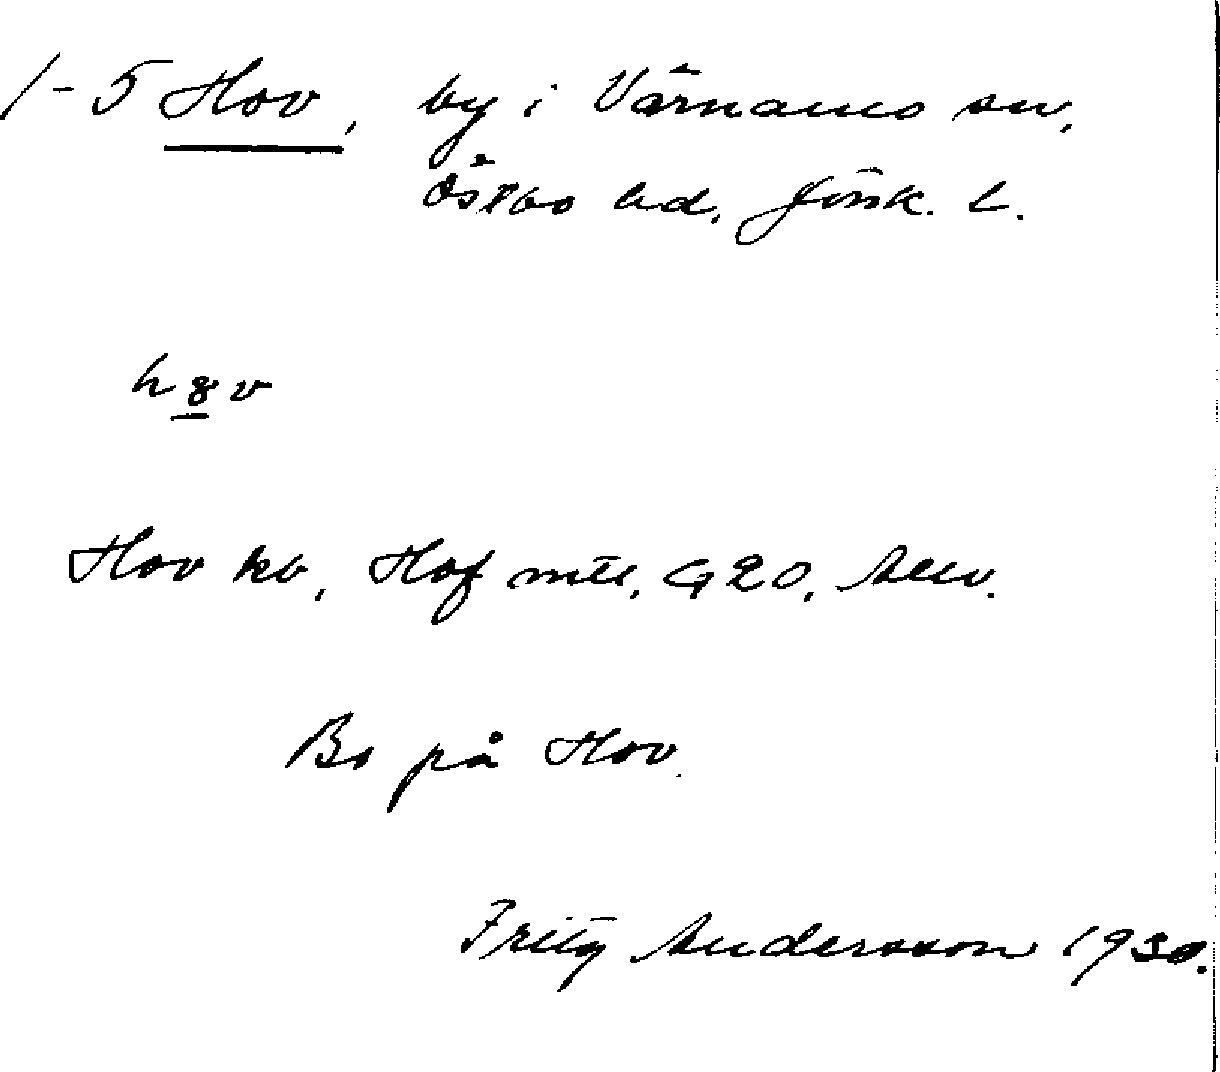 1-5 Hov, by i Värnamo sn,
Östbo hd, Jönk. l.
Hov kb, Hof mtl, G20,
Bo på Hov.
Fritz Andersson 1930.